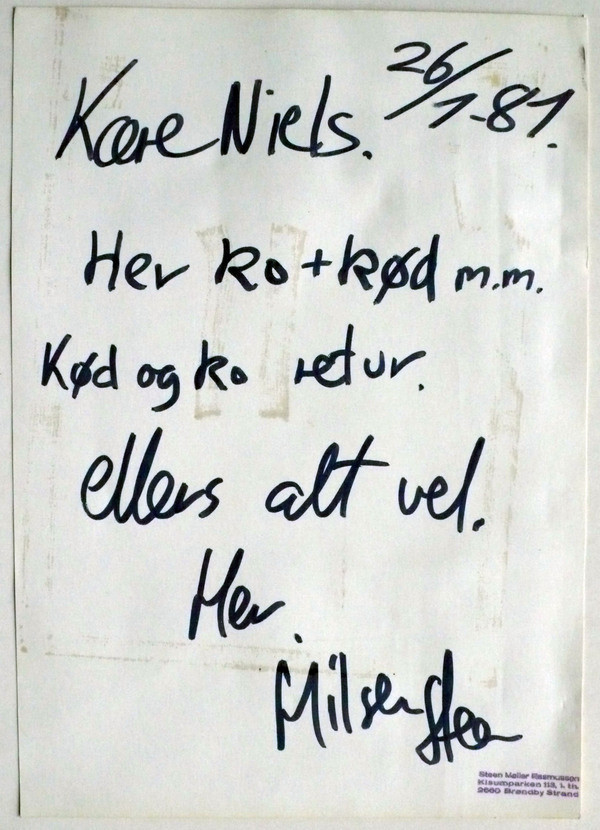 26/1-81.
Kære Niels.
Her ko + kød m.m.
Kød og ko retur.
ellers alt vel.
Her.
Hilsen Steen
Steen Møller Rasmussen
Kisumparken 113, 1. th.
2660 Brøndby Strand